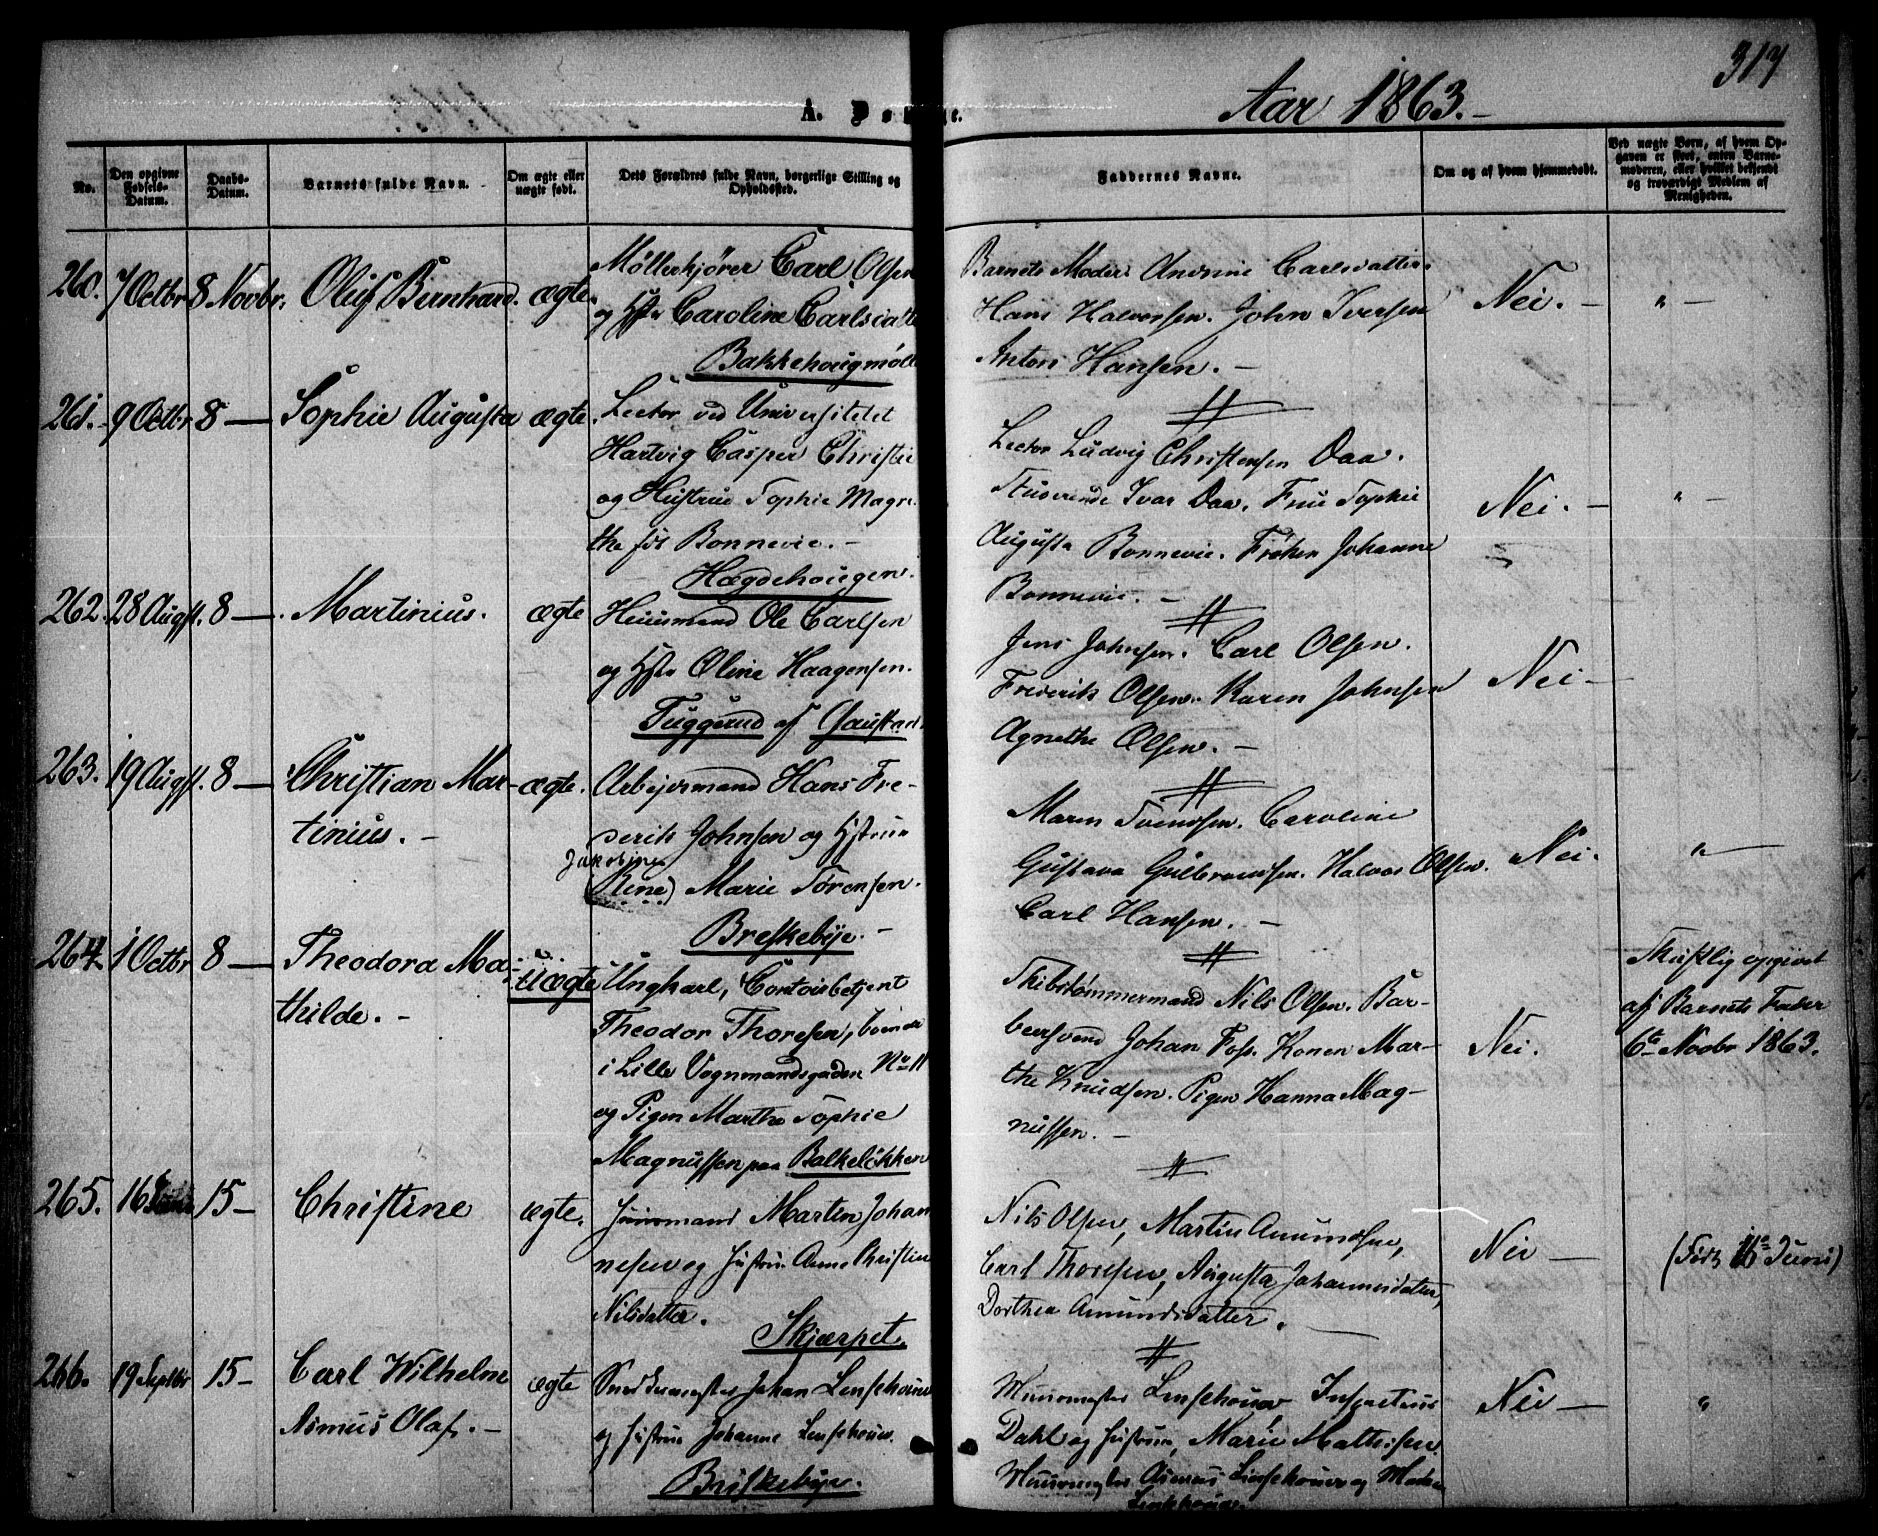 317
Aar 1863.-
A. Døbte.
No.
Den opgivne Fødsels-Datum.
Daabs-Datum.
Barnets fulde Navn.
Om ægte eller uægte født.
Dets Forældres fulde Navn, borgerlige Stilling og Opholdssted.
Faddernes Navne.
Om og af hvem hjemmedøbt.
Ved uægte Børn, af hvem Opgaven er skeet, enten Barnemoderen, eller hvilket bekjendt og troværdigt Medlem af Menigheden.
260. 7 Octbr 8 Novbr. Oluf Bernhard. ægte.
Møllerkjører Carl Olsen
og Hstr Caroline Carlsdatt
Bakkehougmøll
Barnets Moder Andrine Carlsdatter.
Hans Halvorsen. John Iversen
Anton Hansen. -
Nei. - " -
261. 9 Octbr 8 - Sophie Augusta ægte.
Lector ved Universitetet
Hartvig Casper Christie
og Hustrue Sophie Magre
the fød Bonnevie. -
Hægdehougen.
Lector Ludvig Christensen Daa.
Studerende Ivar Daa. Frue Sophie
Augusta Bonnevie. Frøken Johanne
Bonnevie. -
Nei. - " -
262. 28 Augst. 8 - Martinius. ægte
Huusmand Ole Carlsen
og Hstr Oline Haagensen.
Tuggerud af Gaustad
Jens Johnsen. Carl Olsen.
Frederik Olsen. Karen Johnsen
Agnethe Olsen. -
Nei -
263. 19 Augst. 8 - Christian Mar-
tinius. -
ægte.
Arbejdsmand Hans Fre-
derik Johnsen og Hstrue
Jakobine
(Rine) Marie Sørensen.
Breskebye. -
Maren Svendsen. Caroline
Gustava Gulbrandsen. Halvor Olsen.
Carl Hansen. -
Nei. " -
264. 1 Octbr 8 - Theodora Ma-
thilde. -
Uægte
Ungkarl, Contoirbetjent
Theodor Thoresen, boende
i Lille Vognmandsgaden No 11
og Pigen Marthe Sophie
Magnussen paa Balkeløkken
Skibstømmermand Nils Olsen. Bar-
beersvend Johan Foss. Konen Mar-
the Knudsen. Pigen Hanna Mag-
nussen. -
Nei.
Skriftlig opgivet
af Barnets Fader
6te Novbr 1863.
265. 16 Juni 15 - Christine ægte.
Huusmand Martin Johan
nesen og Hustrue Anne Christin
Nilsdatter.
Skjærpet.
Nils Olsen, Martin Amundsen,
Carl Thoresen, Augusta Johannesdatter,
Dorthea Amundsdatter. -
Nei - (Født 16de Juni)
266. 19 Septbr 15 - Carl Wilhelm
Asmus Olaf. -
ægte
Snedkermester Johan Lenschouw
og Hustrue Johanne Lenschouw.
Briskebye.
Muurmester Lenschouw, Inspecteur
Dahl og Hustrue, Marie Mathisen
Muurmester Asmus Lenschouw og Mad.
Lenschouw.
Nei - "